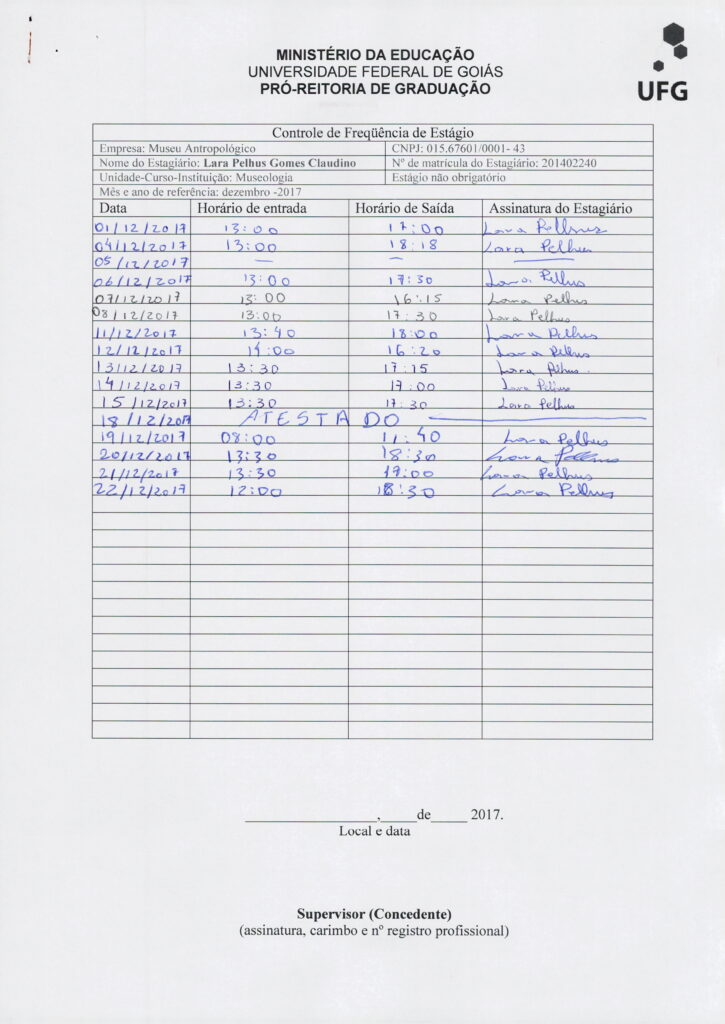 MINISTÉRIO DA EDUCAÇÃO
UNIVERSIDADE FEDERAL DE GOIÁS
PRÓ-REITORIA DE GRADUAÇÃO
UFG
Controle de Freqüência de Estágio
Empresa: Museu Antropológico CNPJ: 015.67601/0001- 43
Nome do Estagiário: Lara Pelhus Gomes Claudino Nº de matrícula do Estagiário: 201402240
Unidade-Curso-Instituição: Museologia Estágio não obrigatório
Mês e ano de referência: dezembro -2017
Data Horário de entrada Horário de Saída Assinatura do Estagiário
01/12/2017 13:00 17:00 Lara Pelhus
04/12/2017 13:00 18:18 Lara Pelhus
05/12/2017 — — —
06/12/2017 13:00 17:30 Lara Pelhus
07/12/2017 13:00 16:15 Lara Pelhus
08/12/2017 13:00 17:30 Lara Pelhus
11/12/2017 13:40 18:00 Lara Pelhus
12/12/2017 14:00 16:20 Lara Pelhus
13/12/2017 13:30 17:15 Lara Pelhus
14/12/2017 13:30 17:00 Lara Pelhus
15/12/2017 13:30 17:30 Lara Pelhus
18/12/2017 ATESTADO
19/12/2017 08:00 11:40 Lara Pelhus
20/12/2017 13:30 18:30 Lara Pelhus
21/12/2017 13:30 17:00 Lara Pelhus
22/12/2017 12:00 18:30 Lara Pelhus
_________________,_____de_____ 2017.
Local e data
Supervisor (Concedente)
(assinatura, carimbo e nº registro profissional)